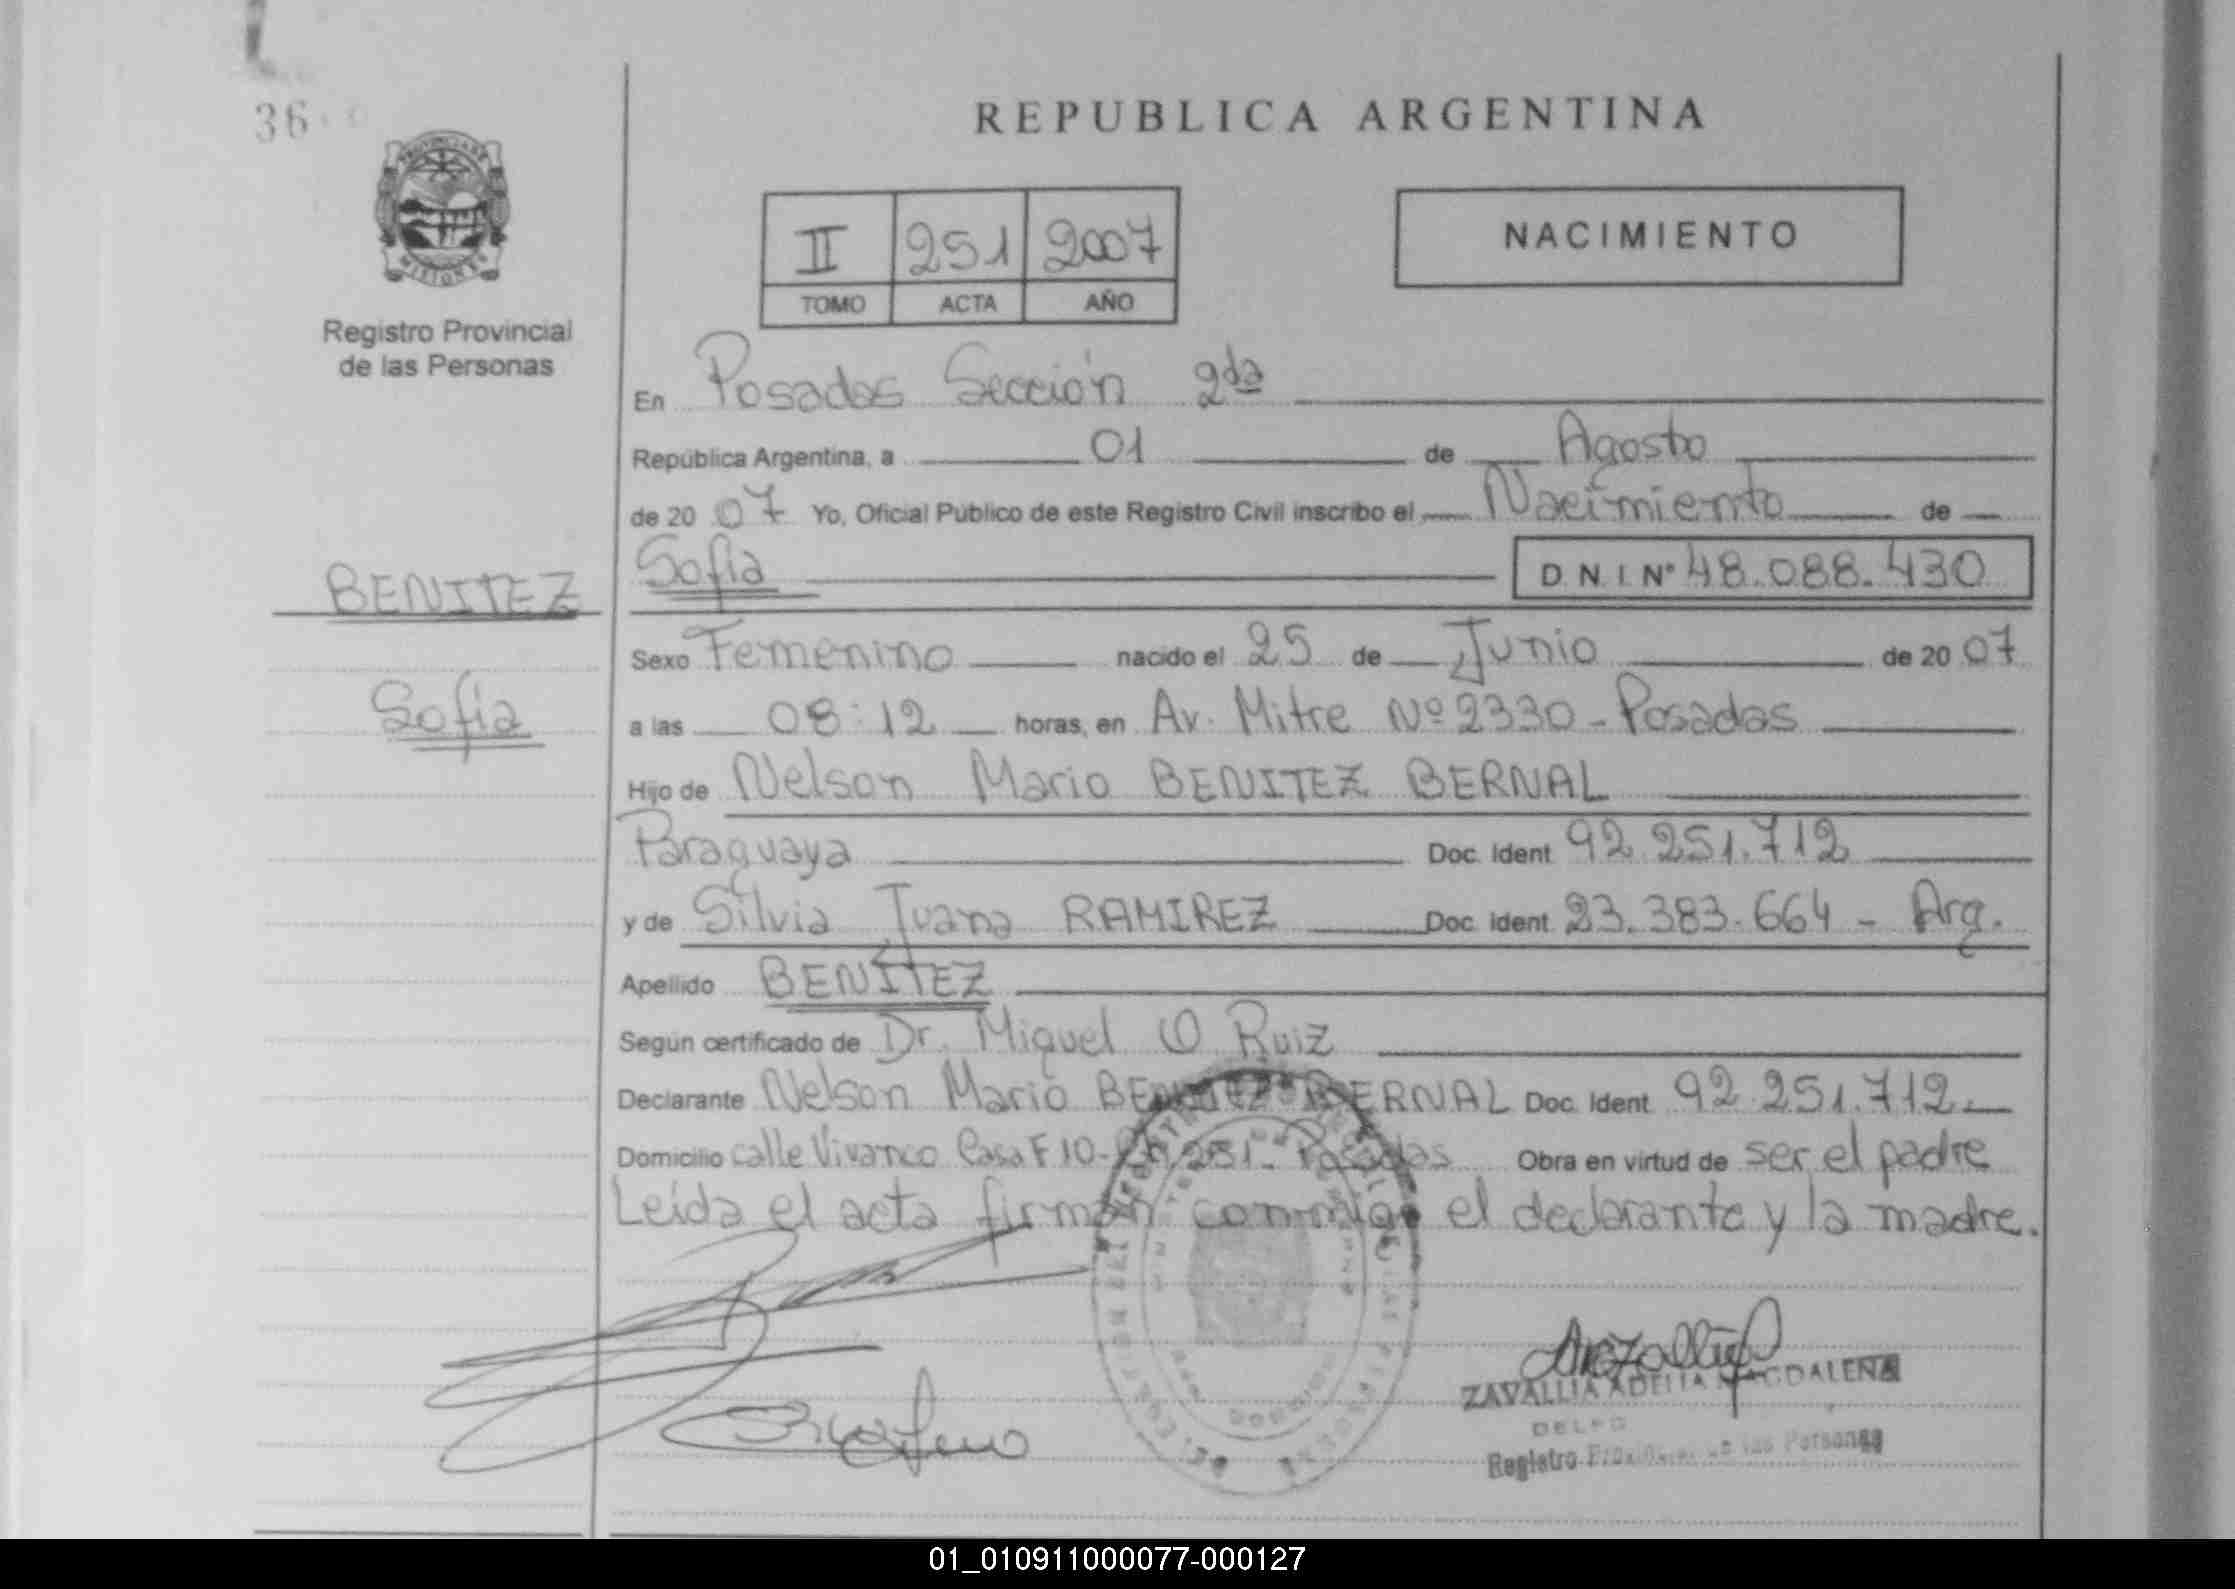 36
REPUBLICA ARGENTINA
PROVINCIA DE
MISIONES
Registro Provincial
de las Personas
II 251 2007
TOMO ACTA AÑO
NACIMIENTO
En Posadas Sección 2da
República Argentina, a 01 de Agosto
de 2007 Yo, Oficial Público de este Registro Civil inscribo el Nacimiento de
BENITEZ
Sofia
Sofia D.N.I. Nº 48.088.430
Sexo Femenino nacido el 25 de Junio de 2007
a las 08:12 horas, en Av. Mitre Nº 2330 - Posadas
Hijo de Nelson Mario BENITEZ BERNAL
Paraguaya Doc. Ident 92.251.712
y de Silvia Juana RAMIREZ Doc. Ident 23.383.664 - Arg.
Apellido BENITEZ
Según certificado de Dr. Miguel O Ruiz
Declarante Nelson Mario BENITEZ BERNAL Doc. Ident 92.251.712
Domicilio calle Vivanco Casa F 10- 251- Posadas Obra en virtud de ser el padre
Leida el acta firman conmigo el declarante y la madre.
ZAVALLIA ADELIA MAGDALENA
Registro Provincial de las Personas
01_010911000077-000127